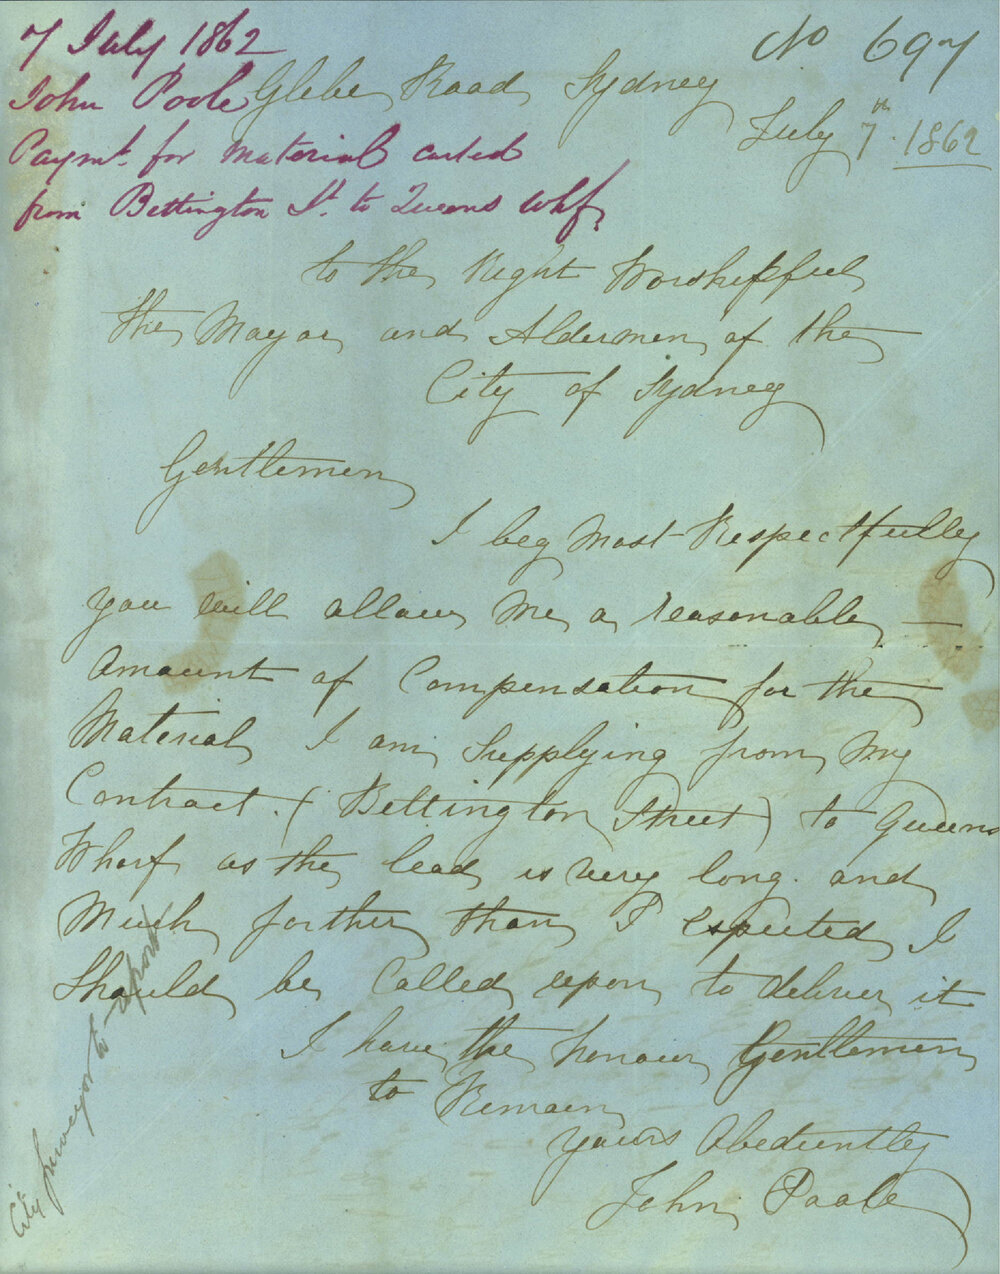 7 July 1862
John Poole
Paymt. for material carted
from Bettington St. to Queens Whf
No 697
Glebe Road Sydney
July 7th. 1862
to the Right Worshipful
the Mayor and Aldermen of the
City of Sydney
Gentlemen
I beg Most Respectfully
you will allow Me a reasonable
Amount of Compensation for the
Material I am Supplying from My
Contract. (Bettington Street) to Queens
Wharf as the lead is very long. and
Much further than I expected I
Should be Called upon to deliver it
I have the honour Gentlemen
to Remain
yours Obediently
John Poole
City Surveyor to report